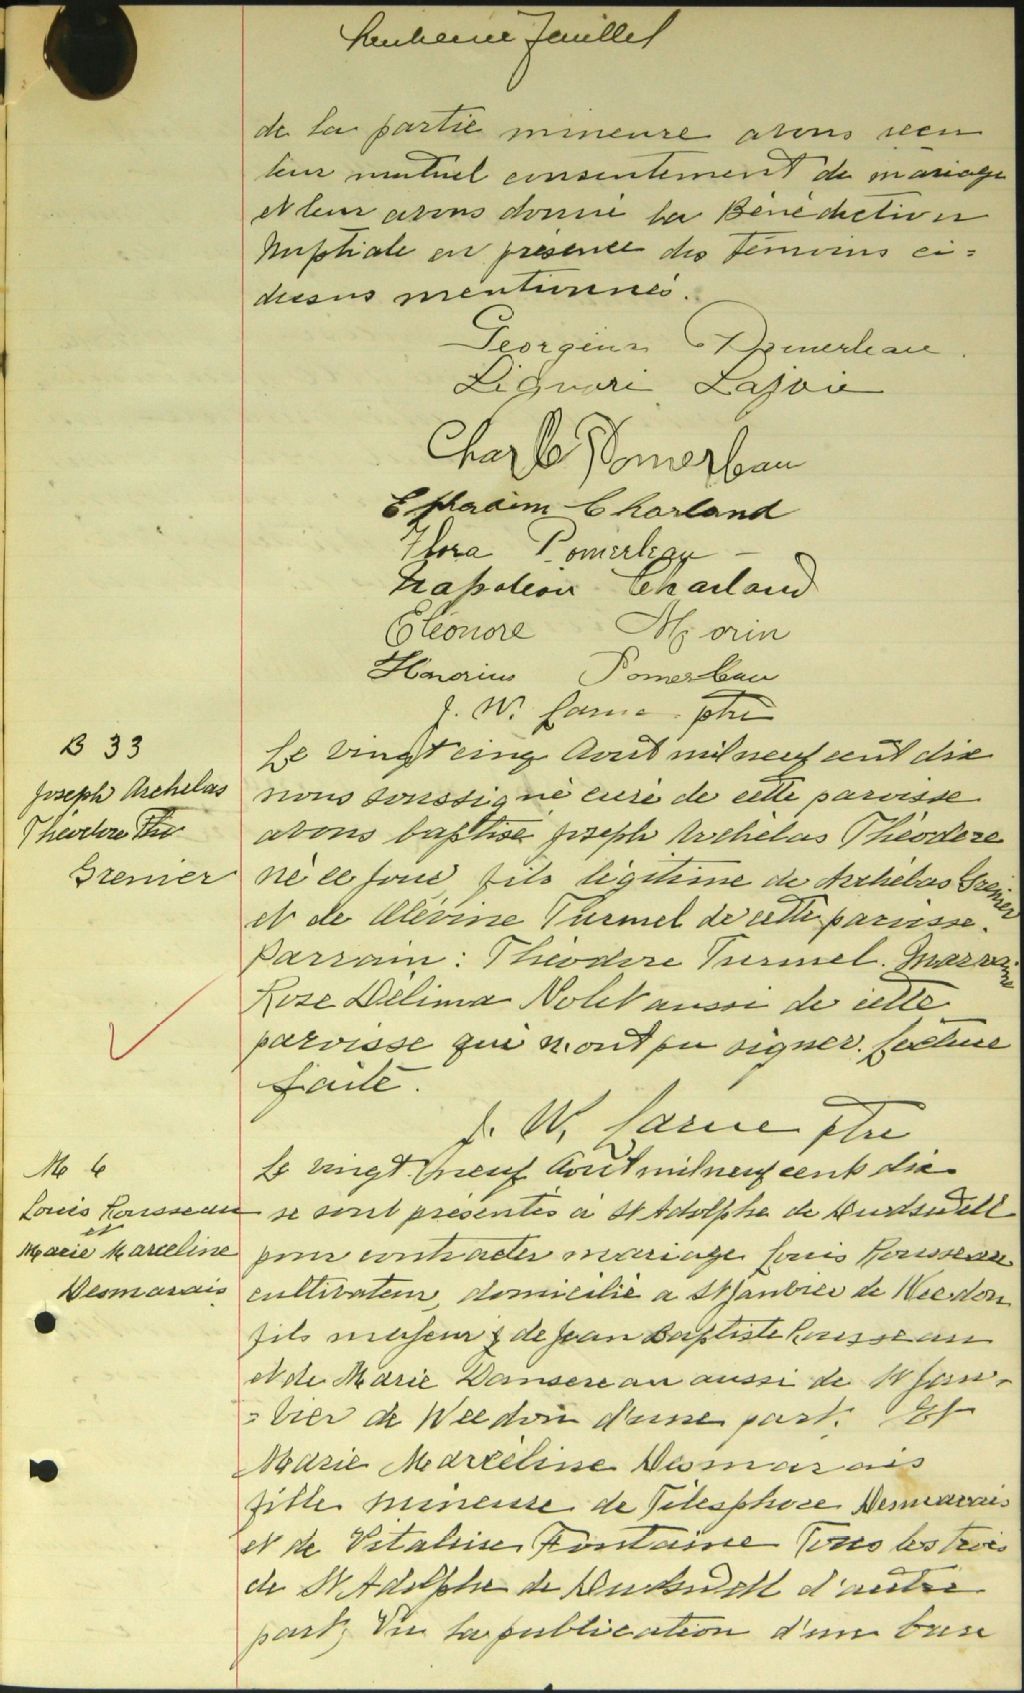 huitième feuillet
de la partie mineure avons reçu
leur mutuel consentement de mariage
et leur avons donné la Bénédiction
Nuptiale en présence des témoins ci=
dessus mentionnés.
Georgina Pomerleau
Liguori Lajoie
Charle Pomerleau
Ephraim Charland
Flora Pomerleau
Napoléon Charland
Eléonore Morin
Honorius Pomerleau
J. W. Larue ptre
B 33
Joseph Archelas
Théodore
Grenier
Le vingt cinq Août mil neuf cent dix
nous soussigné curé de cette paroisse
avons baptisé Joseph Archélas Théodore
né ce jour, fils légitime de Archélas Grenier
et de Alévine Turmel de cette paroisse.
Parrain : Théodore Turmel. Marraine
Rose Délima Nolet aussi de cette
paroisse qui n'ont pu signer. Lecture
faite.
J. W. Larue ptre
M 6
Louis Rousseau
et
Marie Marceline
Desmarais
Le vingt-neuf Août mil neuf cent dix
se sont présentés à St Adolphe de Dudswell
pour contracter mariage Louis Rousseau
cultivateur, domicilié a St Janvier de Weedon
fils majeur de Jean Baptiste Rousseau
et de Marie Dansereau aussi de St Jan-
=vier de Weedon d'une part. Et
Marie Marcéline Desmarais
fille mineure de Télesphore Desmarais
et de Vitaline Fontaine Tous les trois
de St Adolphe de Dudswell d'autre
part; Vu la publication d'un banc